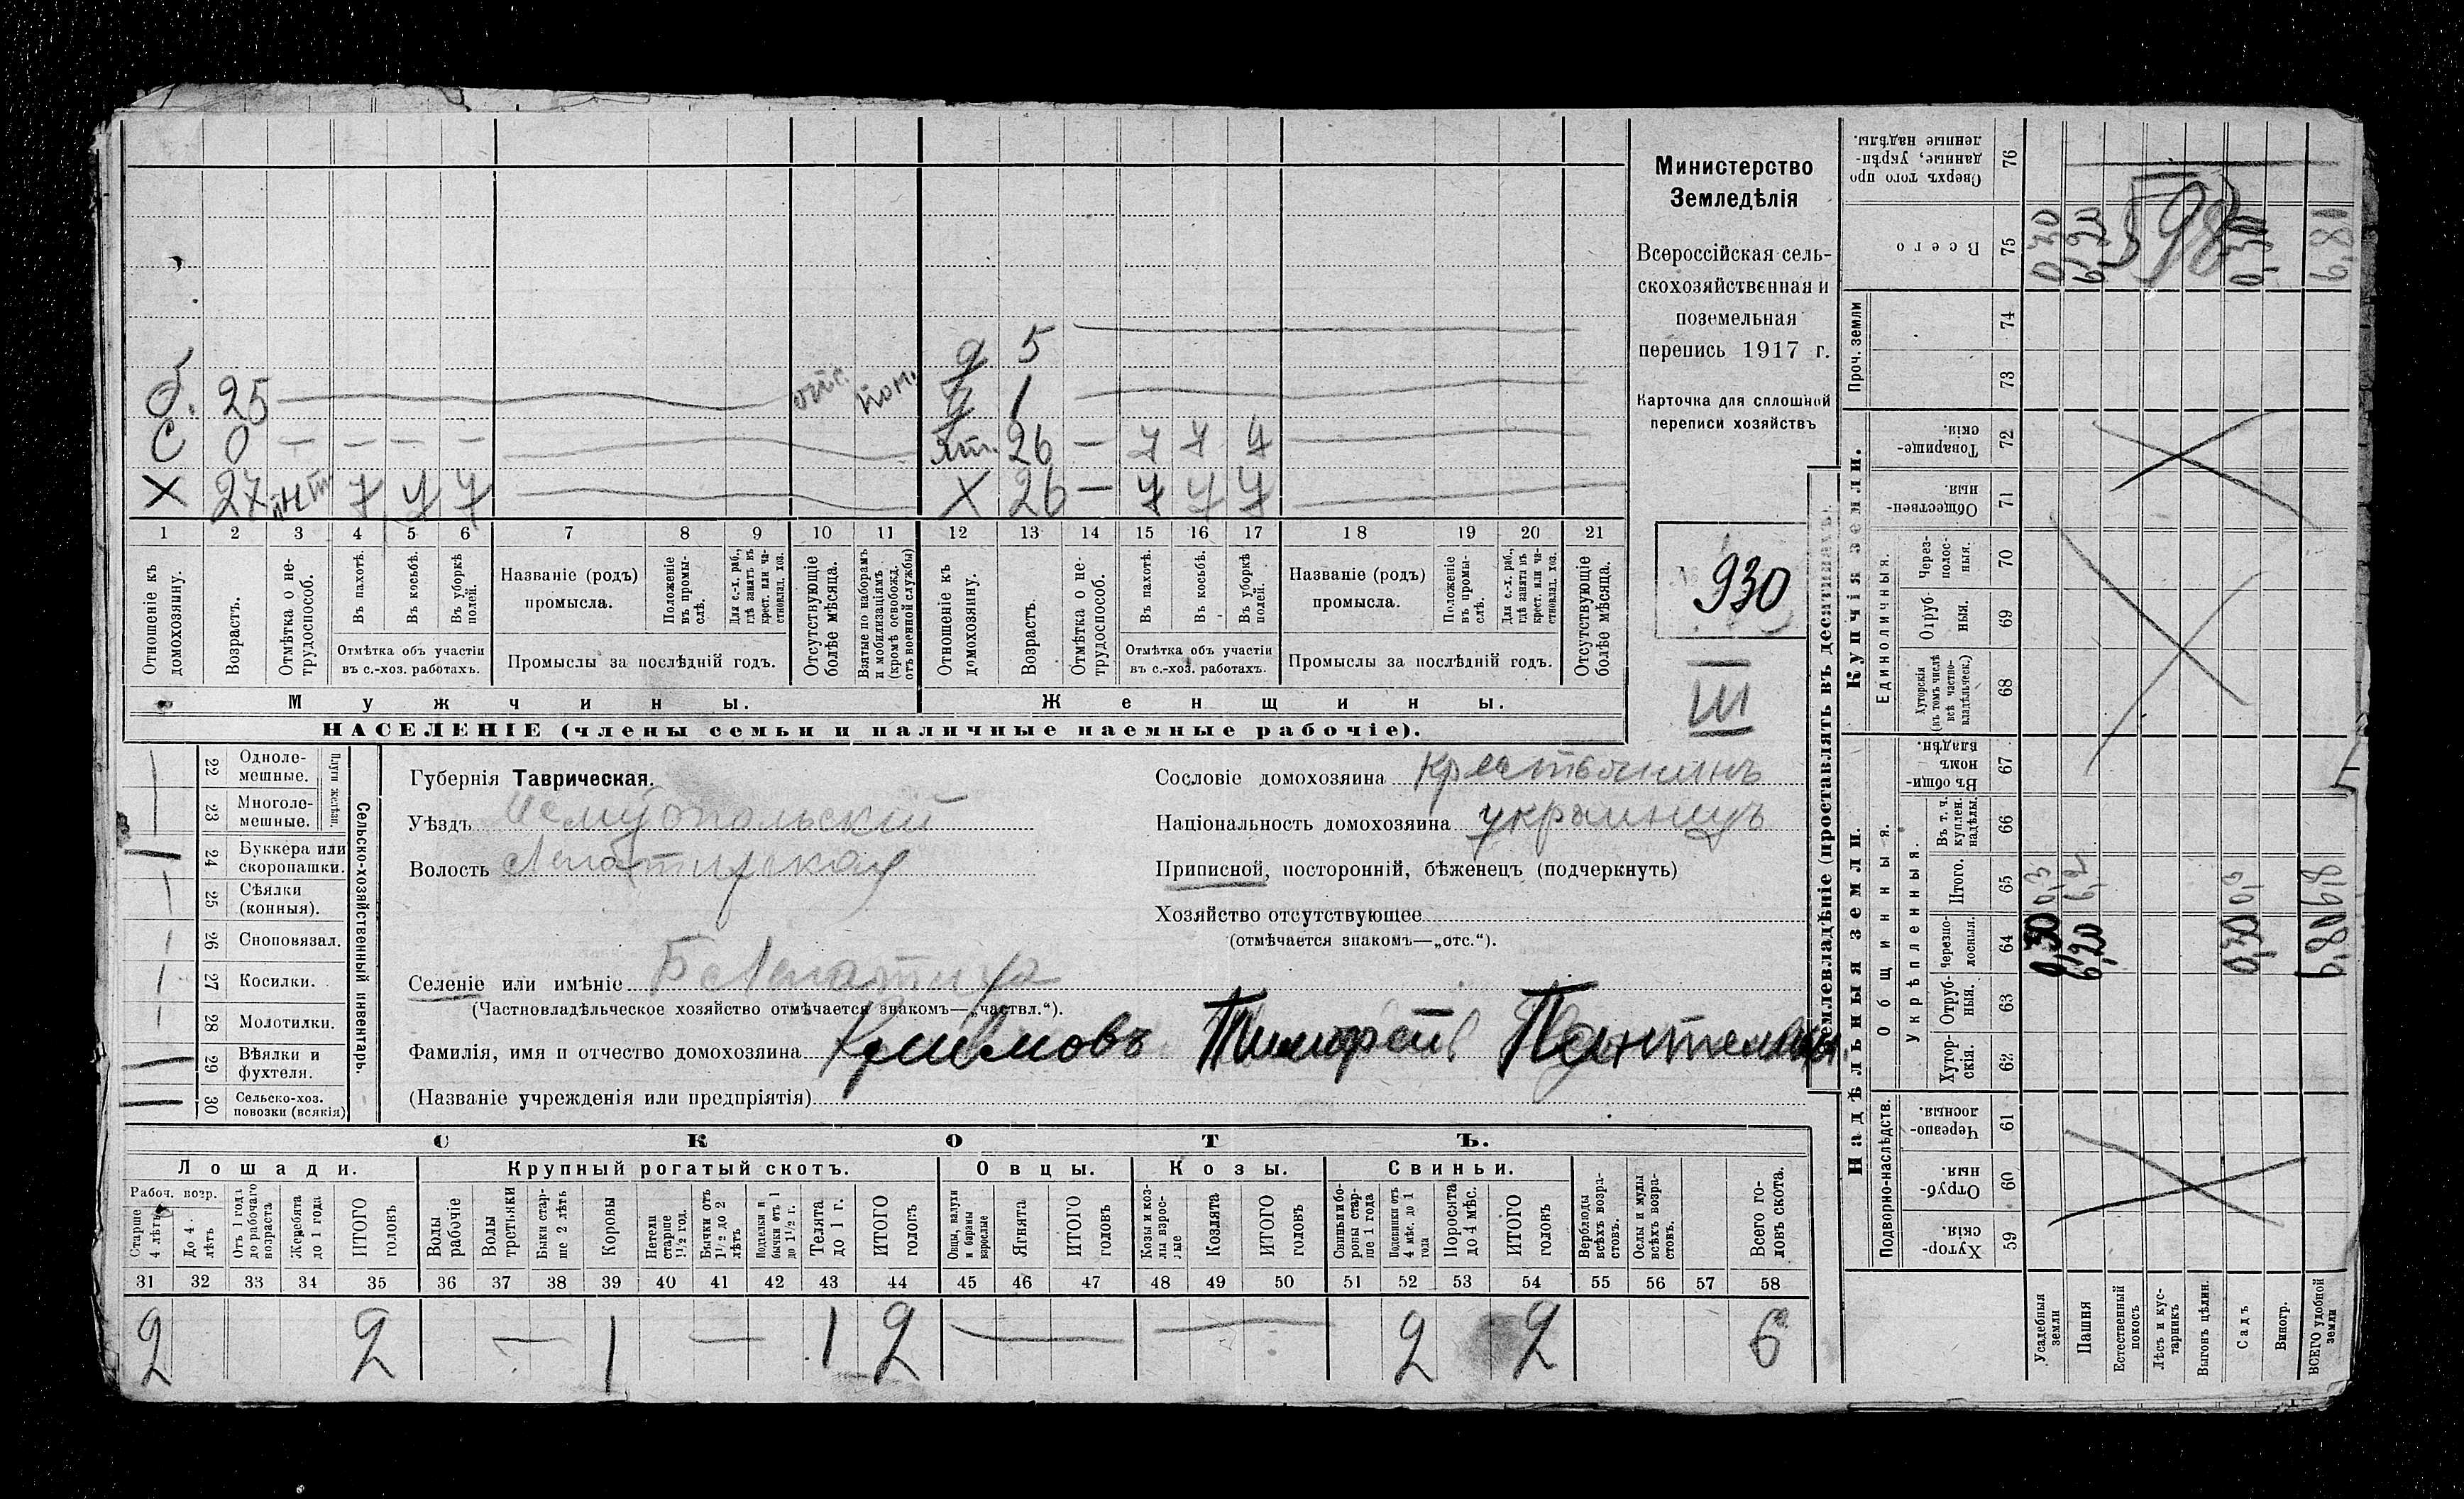 Министерство
Земледѣлія
Всероссійская сель-
скохозяйственная и
поземельная
перепись 1917 г.
Карточка для сплошной
переписи хозяйствъ
930
III
д 5
б. 25 отс. пом.
д 1
С 0 — — — —
26 —
Х 27
Х 26 —
1 2 3 4 5 6 7 8 9 10 11 12 13 14 15 16 17 18 19 20 21
Отношеніе къ домохозяину.
Возрастъ.
Отмѣтка о не-трудоспособ.
Въ пахотѣ.
Въ косьбѣ.
Въ уборкѣ полей.
Отмѣтка объ участіи въ с.-хоз. работахъ.
Названіе (родъ) промысла.
Положеніе въ промы-слѣ.
Для с.-х. раб., гдѣ занятъ въ крест. или ча-стновлад. хоз.
Промыслы за послѣдній годъ.
Отсутствующіе болѣе мѣсяца.
Взятые по наборамъ и мобилизаціямъ (кромѣ освобожд. отъ военной службы)
Отношеніе къ домохозяину.
Возрастъ.
Отмѣтка о не-трудоспособ.
Въ пахотѣ.
Въ косьбѣ.
Въ уборкѣ полей.
Отмѣтка объ участіи въ с.-хоз. работахъ.
Названіе (родъ) промысла.
Положеніе въ промы-слѣ.
Для с.-х. раб., гдѣ занята въ крест. или ча-стновлад. хоз.
Промыслы за послѣдній годъ.
Отсутствующіе болѣе мѣсяца.
Мужчины.
Женщины.
НАСЕЛЕНІЕ (члены семьи и наличные наемные рабочіе).
Сельско-хозяйственный инвентарь.
Плуги желѣзн.
22 Одноле-мешные.
23 Многоле-мешные.
24 Буккера или скоропашки.
25 Сѣялки (конныя).
26 Сноповязал.
27 Косилки.
28 Молотилки.
29 Вѣялки и фухтеля.
30 Сельско-хоз. повозки (всякія)
Губернія Таврическая.
Уѣздъ Мелитопольскій
Волость
Селеніе или имѣніе
(Частновладѣльческое хозяйство отмѣчается знакомъ—„частвл.“).
Фамилія, имя и отчество домохозяина Тимофей
(Названіе учрежденія или предпріятія)
Сословіе домохозяина крестьянинъ
Національность домохозяина украинецъ
Приписной, посторонній, бѣженецъ (подчеркнуть)
Хозяйство отсутствующее
(отмѣчается знакомъ—„отс.“).
СКОТЪ.
Лошади. Крупный рогатый скотъ. Овцы. Козы. Свиньи.
Рабоч. возр.
Старше 4 лѣтъ
До 4 лѣтъ
Отъ 1 года до рабочаго возраста
Жеребята до 1 года
ИТОГО головъ
Волы рабочіе
Волы третьяки
Быки стар-ше 2 лѣтъ
Коровы
Нетели старше 1½ год.
Бычки отъ 1½ до 2 лѣтъ
Подтелки и бычки отъ 1 до 1½ г.
Телята до 1 г.
ИТОГО головъ
Овцы, валухи и бараны взрослые
Ягнята
ИТОГО головъ
Козы и коз-лы взрос-лые
Козлята
ИТОГО головъ
Свиньи и бо-ровы стар-ше 1 года
Подсвинки отъ 4 мѣс. до 1 года
Поросята до 4 мѣс.
ИТОГО головъ
Верблюды всѣхъ возра-стовъ.
Ослы и мулы всѣхъ возра-стовъ.
Всего го-ловъ скота.
31 32 33 34 35 36 37 38 39 40 41 42 43 44 45 46 47 48 49 50 51 52 53 54 55 56 57 58
2 2 — 1 — 1 2 — — 2 2 6
Землевладѣніе (проставлять въ десятинахъ).
Надѣльныя земли.
Купчія земли.
Проч. земли
Подворно-наслѣдств.
Общинныя.
Укрѣпленныя.
Единоличныя.
Сверхъ того про данные, укрѣп-ленные надѣлы. 76
Всего 75
74
73
Товарище-скія. 72
Обществен-ныя. 71
Через-полос-ныя. 70
Отруб-ныя. 69
Хуторскія (въ томъ числѣ всѣ частно-владѣльческ.) 68
Въ общи-номъ владѣн. 67
Въ т. ч. куплен. надѣлы. 66
Итого. 65
Черезпо-лосныя. 64
Отруб-ныя. 63
Хутор-скія. 62
Черезпо-лосныя. 61
Отруб-ныя. 60
Хутор-скія. 59
Усадебныя земли
Пашня
Естественный покосъ
Лѣсъ и кус-тарникъ
Выгонъ цѣлин.
Садъ
Виногр.
ВСЕГО удобной земли
0,30 6,20 598 0,30 6,81
0,3 6,2 0,3 6,8
0,30 6,20 0,30 6,80